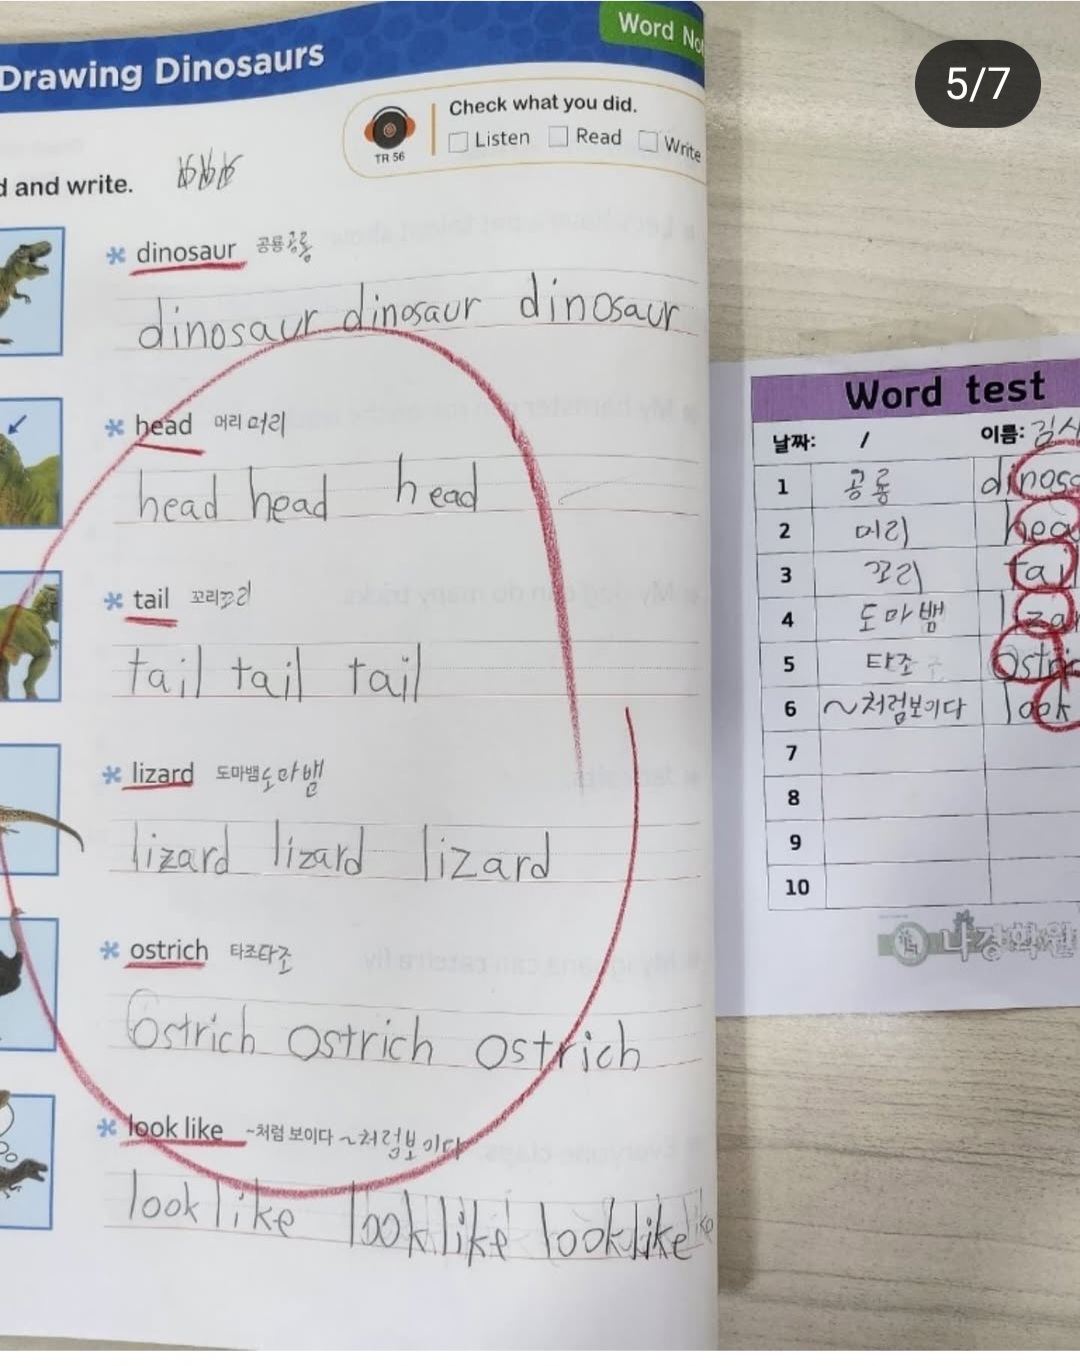 Drawing Dinosaurs
Word
Check what you did.
Listen Read Write
TR 56
and write.
dinosaur 공룡 공룡
dinosaur dinosaur dinosaur
head 머리 머리
head head head
tail 꼬리 꼬리
tail tail tail
lizard 도마뱀 도마뱀
lizard lizard lizard
ostrich 타조 타조
ostrich ostrich ostrich
look like ~처럼 보이다 ~처럼 보이다
look like look like look like
5/7
Word test
날짜: / 이름: 김
1 공룡
2 머리
3 꼬리 tail
4 도마뱀
5 타조
6 ~처럼보이다 look
7
8
9
10
나경학원